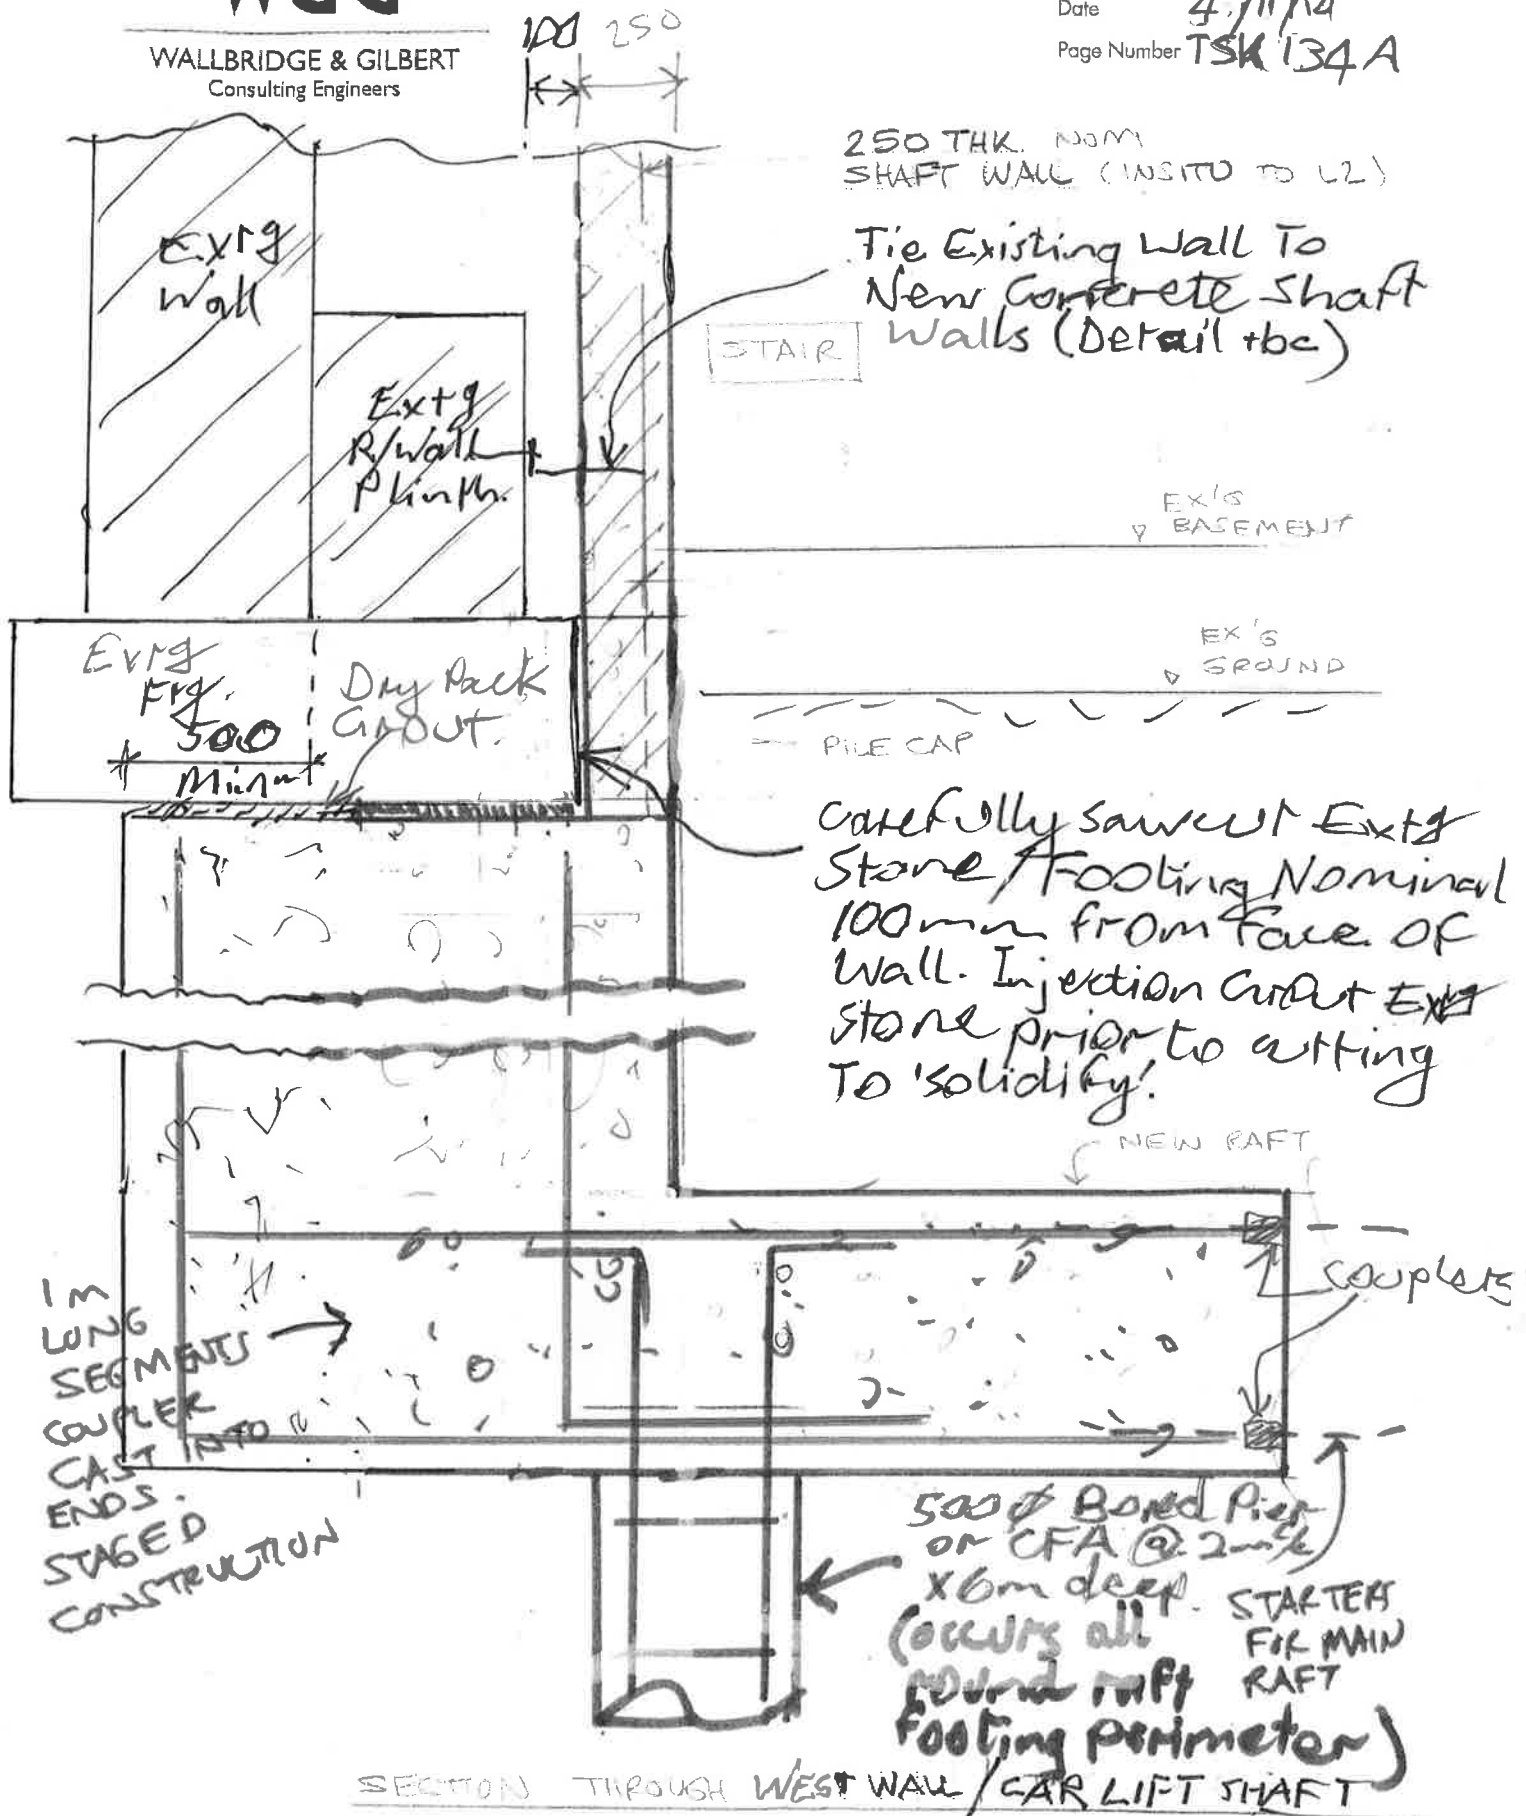 WALLBRIDGE & GILBERT
Consulting Engineers
100 250
Date 4/11/14
Page Number TSK 134 A
250 THK. NOM
SHAFT WALL (INSITU TO L2)
Tie Existing Wall To
New Concrete Shaft
Walls (Detail tbc)
STAIR
Extg
Wall
Extg
R/Wall
Plinth.
EX'G
BASEMENT
EX'G
GROUND
PILE CAP
Extg
Ftg.
500
Minm
Dry Pack
Grout.
Carefully Sawcut Extg
Stone/Footing Nominal
100mm from face of
Wall. Injection Grout Extg
Stone prior to cutting
To 'solidify'.
NEW RAFT
Couplers
1m
LONG
SEGMENTS
COUPLER
CAST INTO
ENDS.
STAGED
CONSTRUCTION
500 Ø Bored Pier
or CFA @ 2m
x 6m deep.
(occurs all
round raft
footing perimeter)
STARTERS
FOR MAIN
RAFT
SECTION THROUGH WEST WALL / CAR LIFT SHAFT